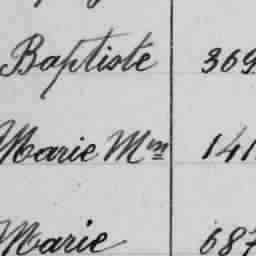 Baptiste 369
Marie Mm 141
Marie 687